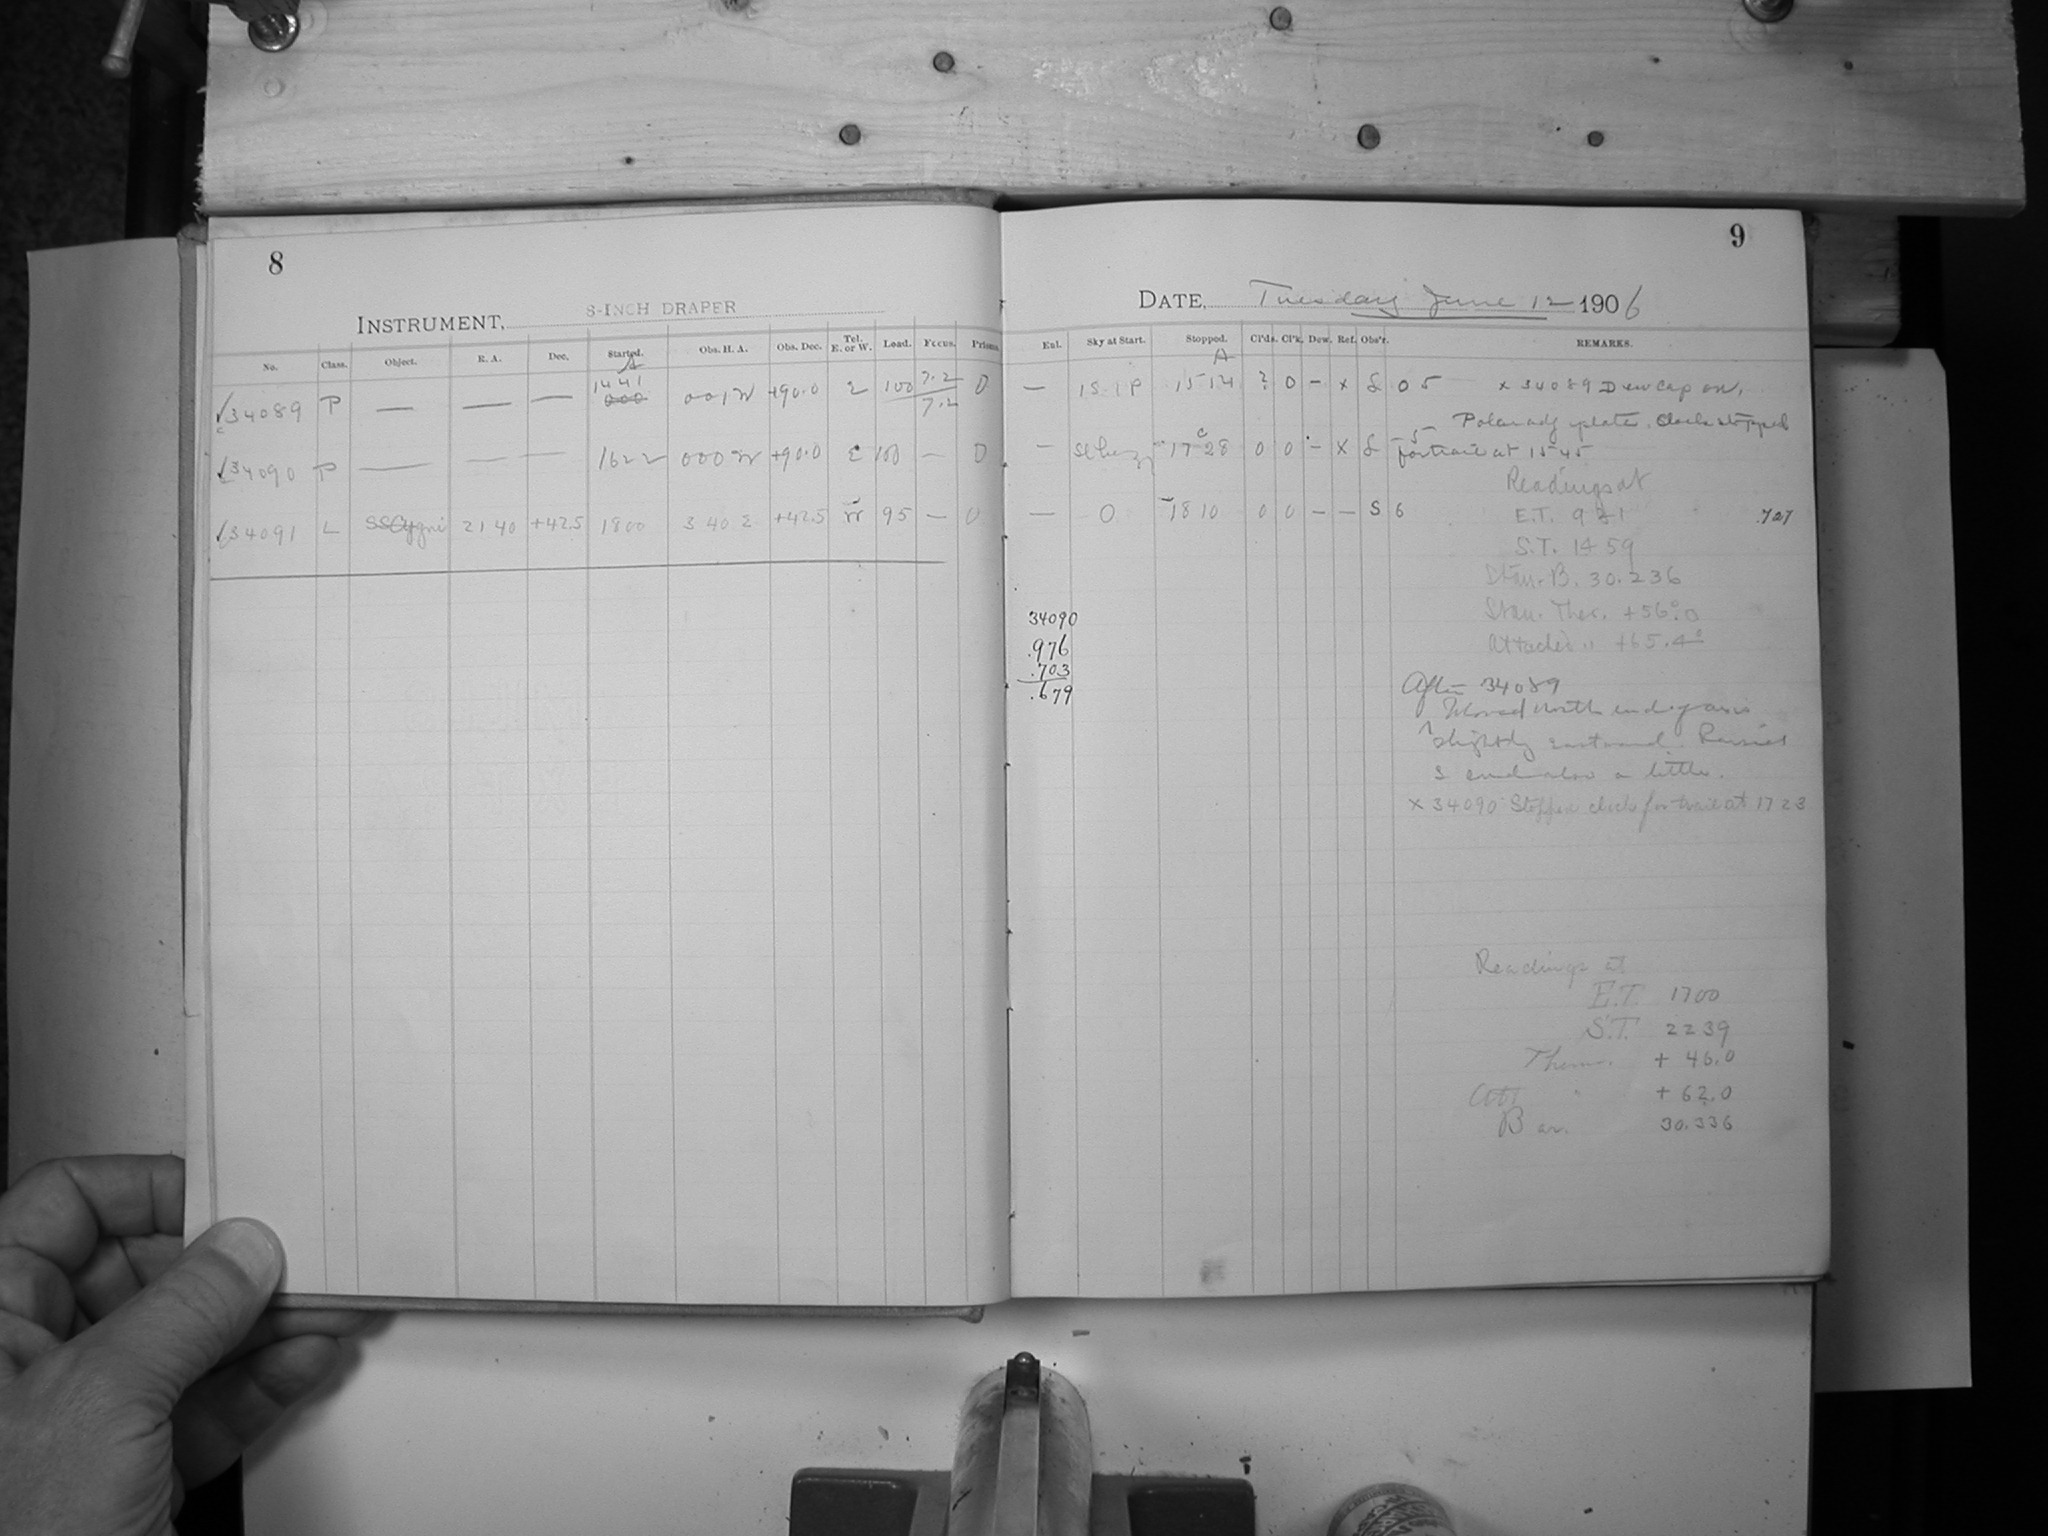 8
INSTRUMENT, 8-INCH DRAPER
No. Class. Object. R. A. Dec. Started. Obs. H. A. Obs. Dec. Tel. E. or W. Load. Focus. Prisms
A
✓34089 P — — — 1441 000 001W +90.0 E 100 7.2 7.2 0
✓34090 P — — — 1622 000 W +90.0 E 100 — 0
✓34091 L SS Cygni 21 40 +42.5 1800 3 40 E +42.5 W 95 — 0
9
DATE, Tuesday June 12 1906
Exl. Sky at Start. Stopped. Cl'ds. Cl'k. Dew. Ref. Obs'r. REMARKS.
A
— 15 14 ? 0 - x 05 x 34089 Dew cap on,
Polar adj plate. Clock stopped
— 17 28 0 0 - x for trail at 15 45
Readings at
— 0 18 10 0 0 - - S 6 E.T. 931 .727
S.T. 14 59
Stan. B. 30.236
Stan. Ther. +56°.0
Attached " +65.4°
34090
.976
.703
.679
After 34089
Moved north end of axis
slightly eastward. Raised
S end also a little.
x 34090 Stopped clock for trail at 1723
Readings at
E.T. 1700
S.T. 2239
Therm. + 46.0
Att " + 62.0
Bar. 30.336